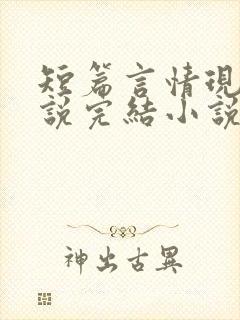 短篇言情現
說完結小說
神出古異